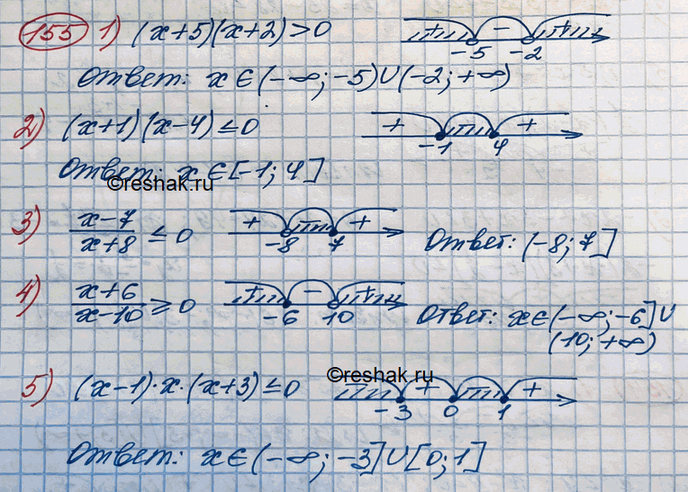 155 1) (x+5)(x+2)>0 + - + -5 -2
Ответ: x∈(-∞;-5)∪(-2;+∞)
2) (x+1)(x-4)≤0 + + -1 4
Ответ: x∈[-1;4]
©reshak.ru
3) (x-7)/(x+8) ≤ 0 + + -8 7 Ответ: (-8;7]
4) (x+6)/(x-10) ≥ 0 + - + -6 10 Ответ: x∈(-∞;-6]∪
(10;+∞)
©reshak.ru
5) (x-1)·x·(x+3)≤0 + + -3 0 1
Ответ: x∈(-∞;-3]∪[0;1]